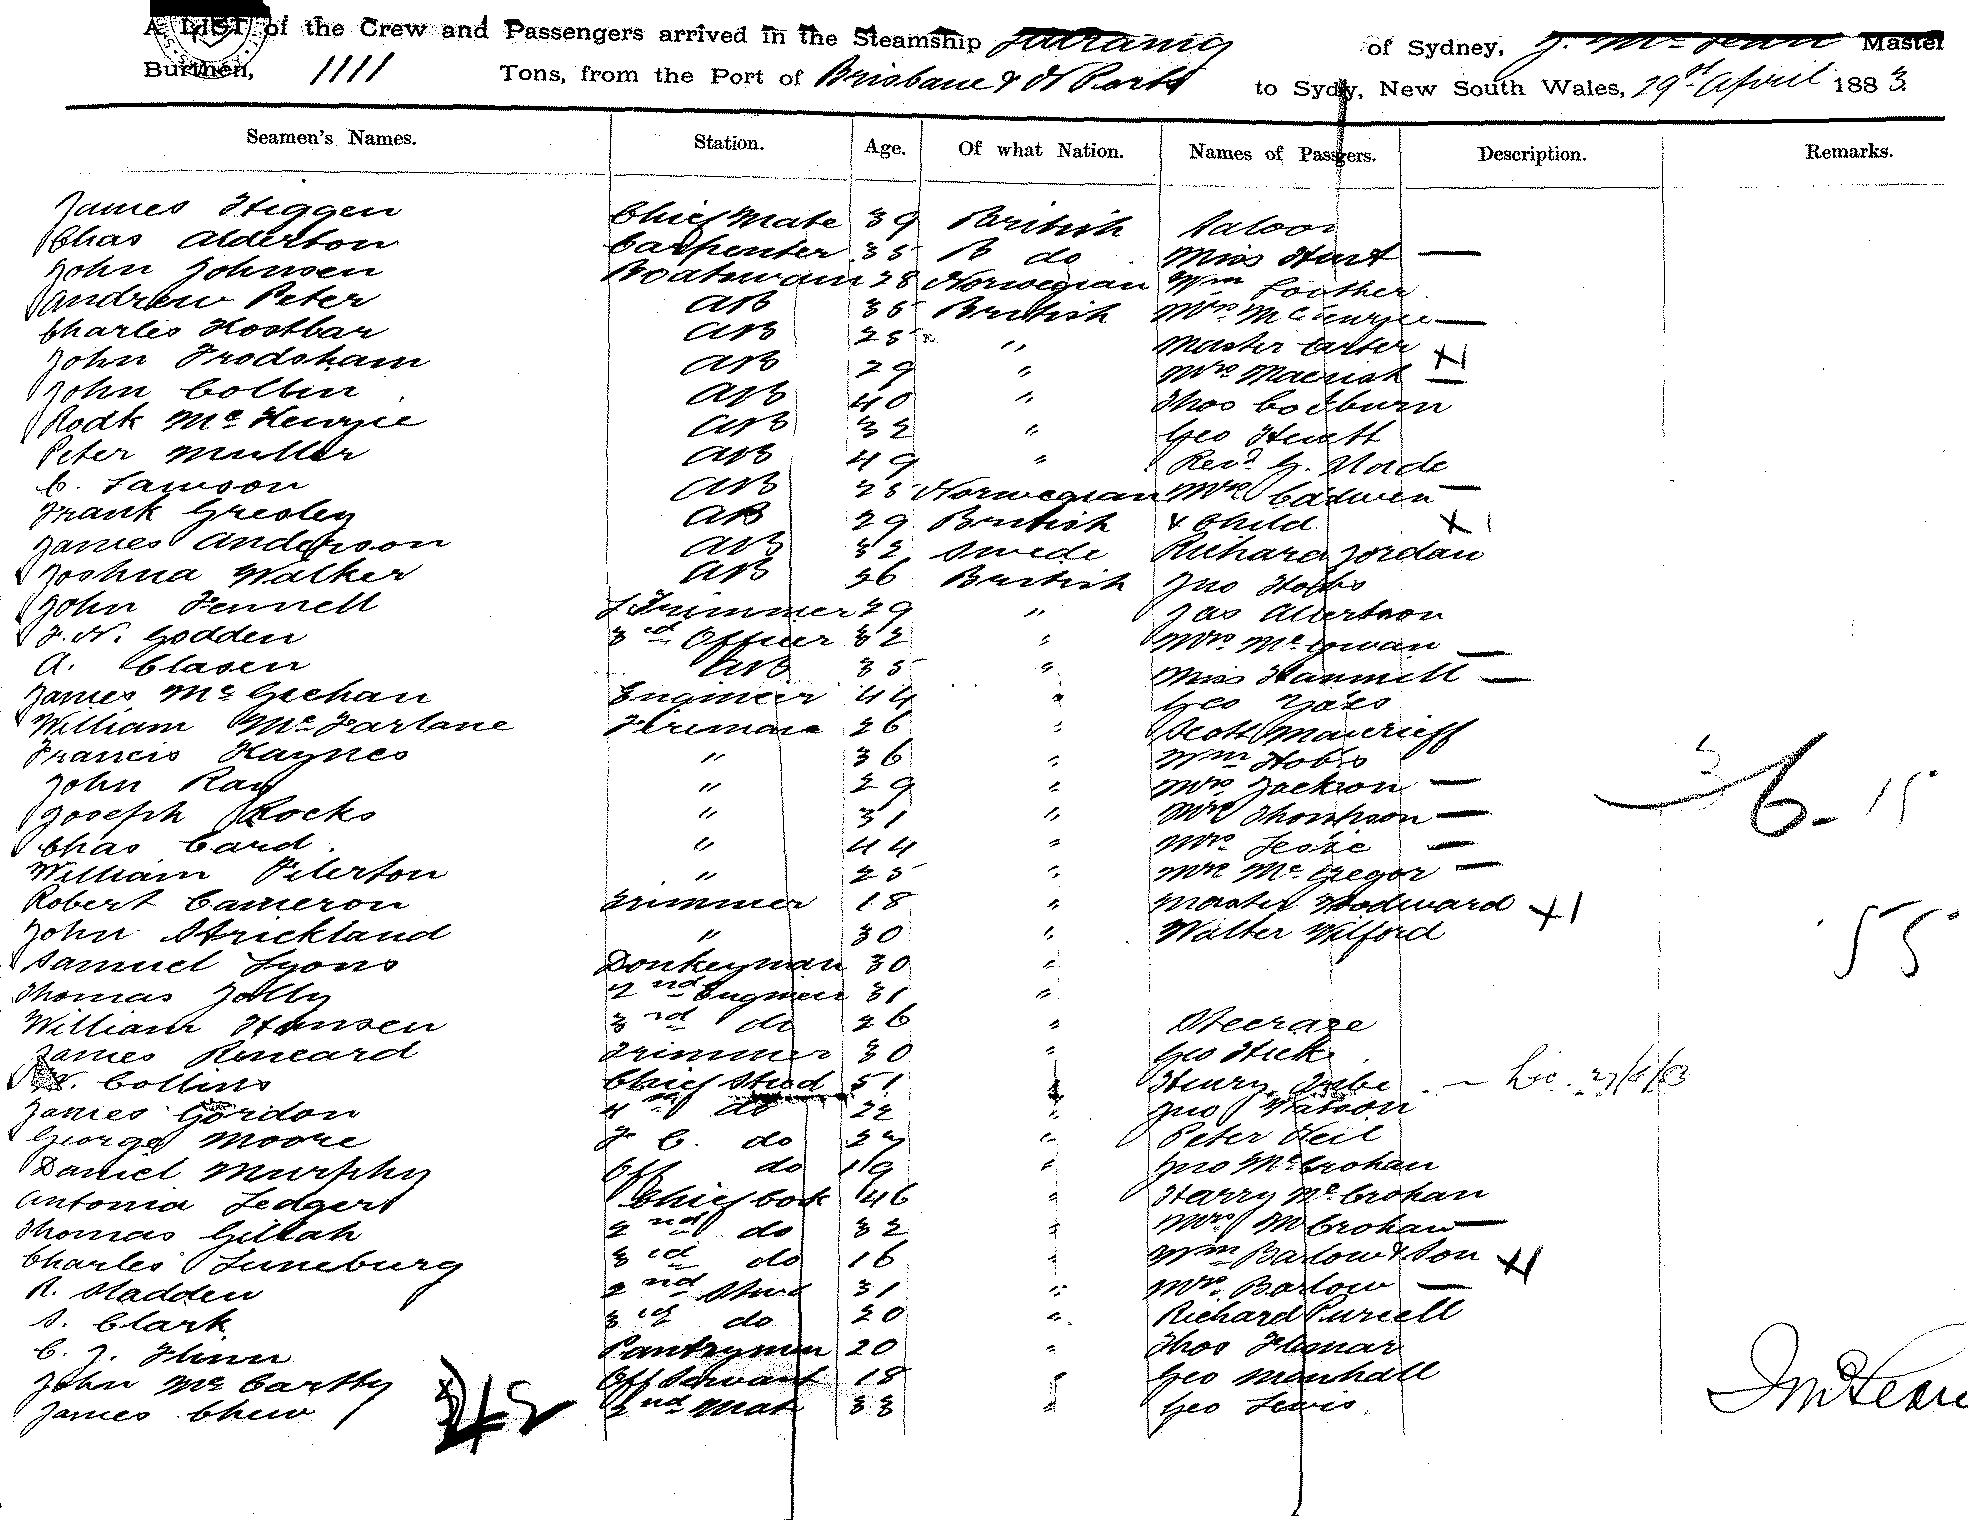 A LIST of the Crew and Passengers arrived in the Steamship of Sydney, J. McLean Master
Burthen, 1111 Tons, from the Port of Brisbane & N Ports to Sydy, New South Wales, 29th April 1883
Seamen's Names. Station. Age. Of what Nation. Names of Passgers. Description. Remarks.
James Higgen Chief Mate 39 British Saloon
Chas Alderton Carpenter 35 B do Miss Hunt —
John Johnsen Boatswain 28 Norwegian Wm
Andrew Peter AB 35 British Mrs —
Charles AB 25 " Master Carter
John Frodsham AB 29 " Mrs —
John Collin AB 40 " Thos Cockburn
Rodk McKenzie AB 32 " Geo Hewett
Peter Muller AB 49 " Revd G.
C. Samson AB 25 Norwegian Mrs —
Frank Gresley AB 29 British & Child X 1
James Anderson AB 32 Swede Richard Jordan
Joshua Walker AB 26 British Jno Hobbs
John Fennell Trimmer 29 " Jas
J. N. Godden 3rd Officer 32 " Mrs McGowan —
A. Clasen AB 35 " Miss Hammill —
James McGeehan Engineer 44 " Geo Yates
William McFarlane Fireman 26 " Scott
Francis Haynes " 36 " Wm Hobbs
John Ray " 29 " Mrs Jackson —
Joseph Rocks " 31 " Mrs Thompson —
Chas Card " 44 " Mrs Leslie —
William " 25 " Mrs McGregor —
Robert Cameron Trimmer 18 " Master Woodward X 1
John Strickland " 30 " Walter Wilford
Samuel Lyons Donkeyman 30 "
Thomas Jolly 2nd Engineer 31 "
William Hansen 3rd do 26 " Steerage
James Trimmer 30 " Geo Hick
Collins Chief Stwd 51 " Henry
James Gordon 4th do 22 " Jno Watson
George Moore F. C. do 27 " Peter Neil
Daniel Murphy do 19 " Jno McCrohan
Antonia Ledgert Chief Cook 46 " Harry McCrohan
Thomas Gillah 2nd do 32 " Mrs McCrohan —
Charles Luneburg 3rd do 16 " Wm Barlow & Son X 1
R. Madden 2nd Stwd 31 " Mrs Barlow —
S. Clark 3rd do 20 " Richard Purcell
C. J. Flinn Pantryman 20 " Thos
John McCarthy Off Servant 18 " Geo Marshall
James Chew 2nd Mate 33 " Geo Lewis
6. 15
55
42
J McLean